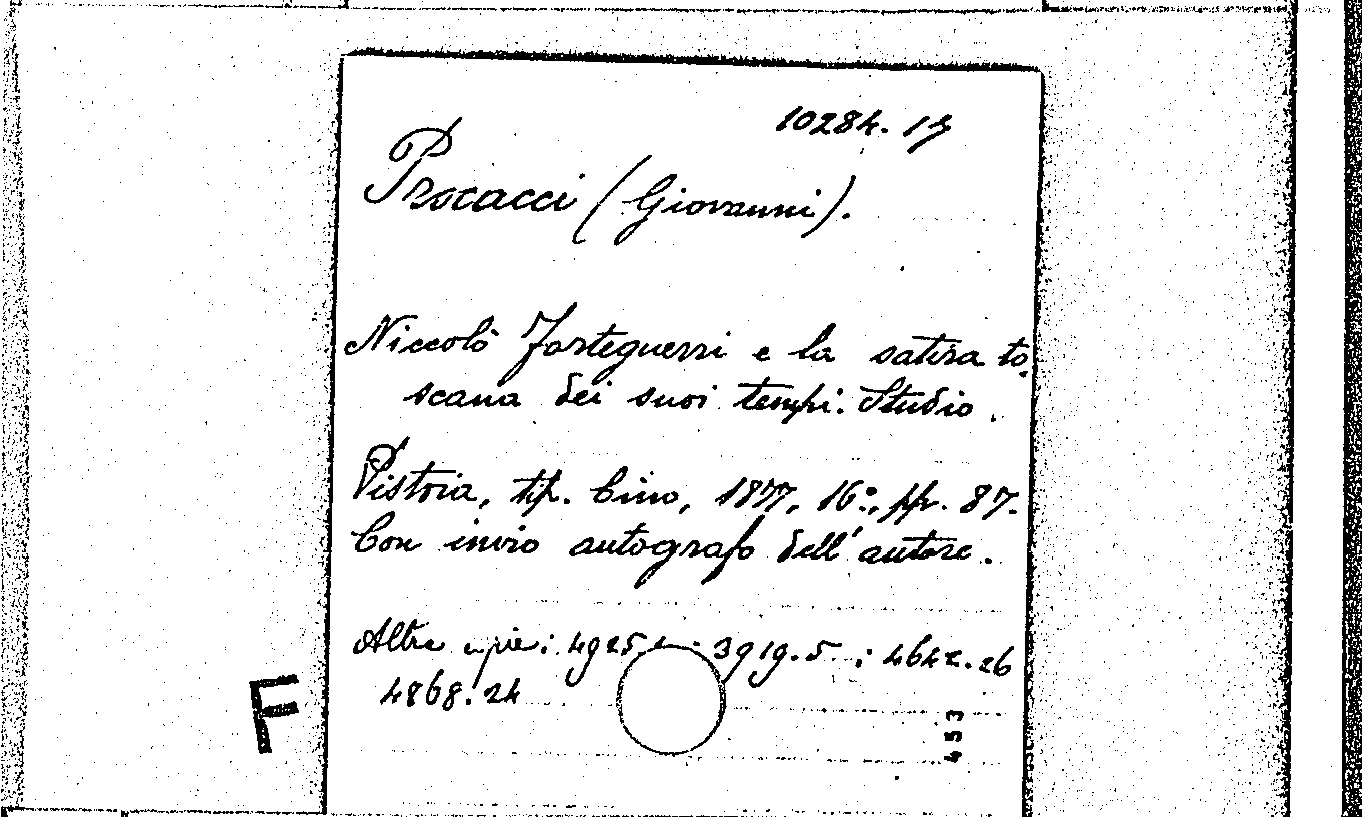 10284. 13
Procacci (Giovanni).
Niccolò Forteguerri e la satira to-
scana dei suoi tempi. Studio.
Pistoia, tip. Cino, 1877, 16°., pp. 87.
Con invio autografo dell'autore.
Altre copie: 4925. ; 3919.5 ; 4642.26
4868.24
F
453